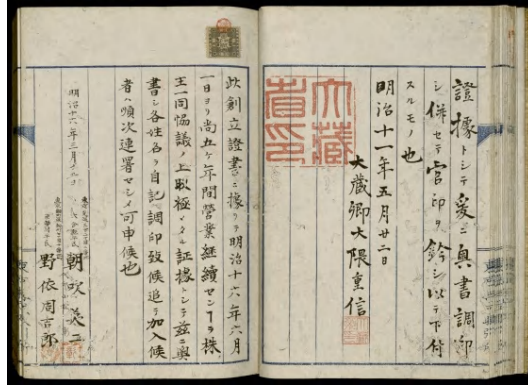 證據トシテ爰ニ奥書調印
シ併セテ官印ヲ鈐シ以テ下付
スルモノ也
明治十一年五月廿二日
大藏卿大隈重信
大藏
省印
此創立證書ニ據リテ明治十六年六月
一日ヨリ尚五ケ年間營業継續セン丁ヲ株
主一同協議ノ上取極メタル証據トシテ茲ニ奥
書シ各姓名ヲ自記調印致候追テ加入候
者ハ順次連署セシメ可申候也
明治十六年三月十九日
朝吹英二
野依周吉郎